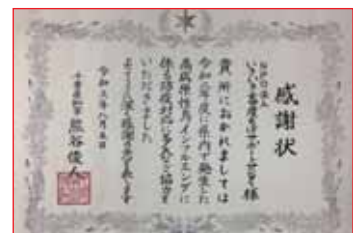 感謝状
NPO法人
様
貴所におかれましては
令和二年度に県内で発生した
高病原性鳥インフルエンザに
係る防疫対応に多大なご協力を
いただきました
よってここに深く感謝の意を表します
令和三年八月五日
千葉県知事 熊谷俊人